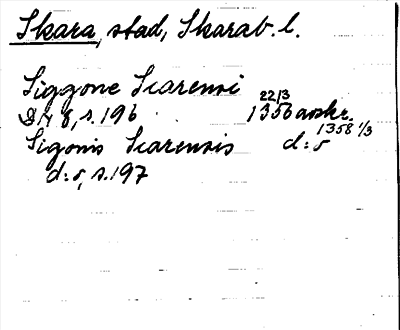 Skara, stad, Skarab. l.
Siggone Scarensi
22/3
SH 8, s. 196 1356 avskr.
Sigonis Scarensis d:o 1358 1/3
d:o, s. 197